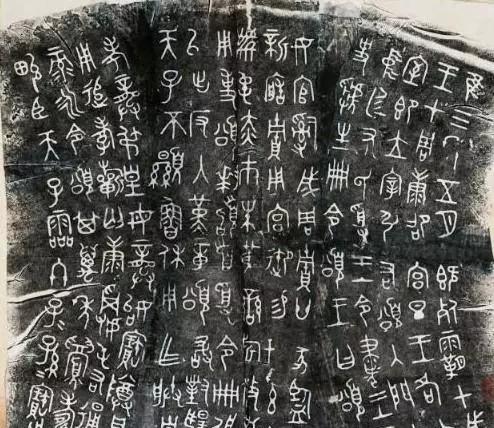 隹三年五月既死霸甲戌
王才周康卲宮旦王各
室即立宰引右頌入門
尹氏受王令書王
史虢生冊令頌王曰頌
女官𤔲成周賈廿家監
新造賈用宮御易女玄
黹屯赤巿朱黃䜌旂攸
用事頌拜稽首受令冊佩
以出反入堇章頌敢對揚
天子不顯魯休用乍朕皇
考龏叔皇母龏始寶尊鼎
用追孝祈匄康𩛥屯右通
彔永令頌其萬年眉壽
畯臣天子霝冬子孫寶